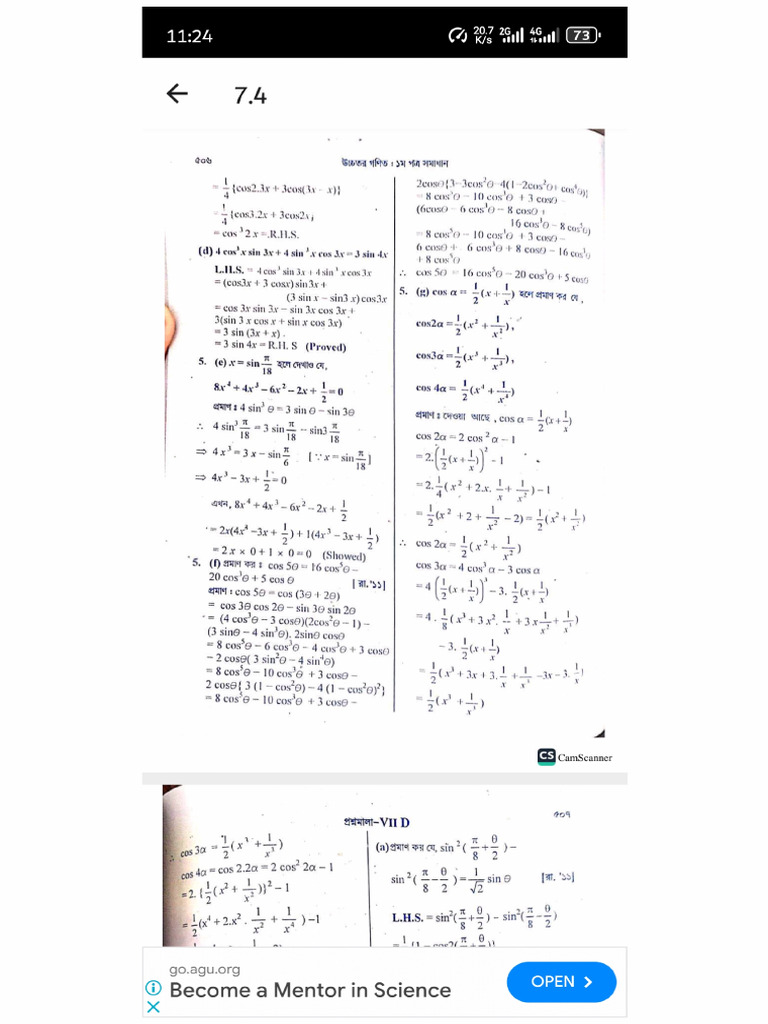 11:24
20.7 K/s 2G 4G 73
7.4
৫০৬
উচ্চতর গণিত : ১ম পত্র সমাধান
= 1/4 {cos2.3x + 3cos(3x − x)}
= 1/4 {cos3.2x + 3cos2x}
= cos³ 2x = R.H.S.
(d) 4 cos³ x sin 3x + 4 sin³ x cos 3x = 3 sin 4x
L.H.S. = 4 cos³ sin 3x + 4 sin³ x cos 3x
= (cos3x + 3 cosx) sin3x +
(3 sin x − sin3 x) cos3x
= cos 3x sin 3x − sin 3x cos 3x +
3(sin 3 x cos x + sin x cos 3x)
= 3 sin (3x + x) .
= 3 sin 4x = R.H. S (Proved)
5. (e) x = sin π/18 হলে দেখাও যে,
8x⁴ + 4x³ − 6x² − 2x + 1/2 = 0
প্রমাণ : 4 sin³ θ = 3 sin θ − sin 3θ
∴ 4 sin³ π/18 = 3 sin π/18 − sin3 π/18
⇒ 4 x³ = 3 x − sin π/6 [∵ x = sin π/18]
⇒ 4x³ − 3x + 1/2 = 0
এখন, 8x⁴ + 4x³ − 6x² − 2x + 1/2
= 2x(4x⁴ − 3x + 1/2) + 1(4x³ − 3x + 1/2)
= 2 x × 0 + 1 × 0 = 0 (Showed)
5. (f) প্রমাণ কর : cos 5θ = 16 cos⁵θ −
20 cos³θ + 5 cos θ [ রা.'১১]
প্রমাণ : cos 5θ = cos (3θ + 2θ)
= cos 3θ cos 2θ − sin 3θ sin 2θ
= (4 cos³θ − 3 cosθ)(2cos²θ − 1) −
(3 sinθ − 4 sin³θ). 2sinθ cosθ
= 8 cos⁵θ − 6 cos³θ − 4 cos³θ + 3 cosθ
− 2 cosθ( 3 sin²θ − 4 sin⁴θ)
= 8 cos⁵θ − 10 cos³θ + 3 cosθ −
2 cosθ{ 3 (1 − cos²θ) − 4 (1 − cos²θ)²}
= 8 cos⁵θ − 10 cos³θ + 3 cosθ −
2cosθ{3−3cos²θ−4(1−2cos²θ+ cos⁴θ)}
= 8 cos⁵θ − 10 cos³θ + 3 cosθ −
(6cosθ − 6 cos³θ − 8 cosθ +
16 cos³θ − 8 cos⁵θ)
= 8 cos⁵θ − 10 cos³θ + 3 cosθ −
6 cosθ + 6 cos³θ + 8 cosθ − 16 cos³θ
+ 8 cos⁵θ
∴ cos 5θ = 16 cos⁵θ − 20 cos³θ + 5 cosθ
5. (g) cos α = 1/2 (x + 1/x) হলে প্রমাণ কর যে,
cos2α = 1/2 (x² + 1/x²),
cos3α = 1/2 (x³ + 1/x³),
cos 4α = 1/2 (x⁴ + 1/x⁴)
প্রমাণ : দেওয়া আছে , cos α = 1/2 (x + 1/x)
cos 2α = 2 cos² α − 1
= 2.{1/2 (x + 1/x)}² − 1
= 2. 1/4 ( x² + 2.x. 1/x + 1/x²) − 1
= 1/2 (x² + 2 + 1/x² − 2) = 1/2 (x² + 1/x²)
∴ cos 2α = 1/2 (x² + 1/x²)
cos 3α = 4 cos³ α − 3 cos α
= 4 {1/2 (x + 1/x)}³ − 3. 1/2 (x + 1/x)
= 4 . 1/8 ( x³ + 3 x². 1/x + 3 x 1/x² + 1/x³)
− 3. 1/2 (x + 1/x)
= 1/2 ( x³ + 3x + 3. 1/x + 1/x³ − 3x − 3. 1/x)
= 1/2 (x³ + 1/x³)
CS CamScanner
প্রশ্নমালা−VII D
৫০৭
∴ cos 3α = 1/2 (x³ + 1/x³)
cos 4α = cos 2.2α = 2 cos² 2α − 1
= 2. {1/2 (x² + 1/x²)}² − 1
= 1/2 (x⁴ + 2.x² . 1/x² + 1/x⁴) − 1
(a) প্রমাণ কর যে, sin² ( π/8 + θ/2 ) −
sin² ( π/8 − θ/2 ) = 1/√2 sin θ [রা. '১১]
L.H.S. = sin² ( π/8 + θ/2 ) − sin² ( π/8 − θ/2 )
go.agu.org
Become a Mentor in Science
OPEN